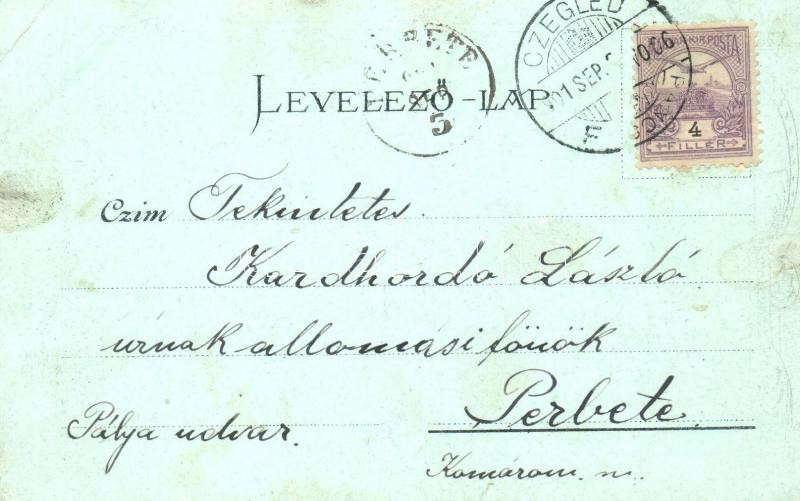 LEVELEZŐ-LAP
CZEGLÉD
901 SEP.
F
5
4
FILLÉR
Czim Tekintetes
Kardhordó László
úrnak allomási főnök
Perbete
Pálya udvar.
Komárom. m.